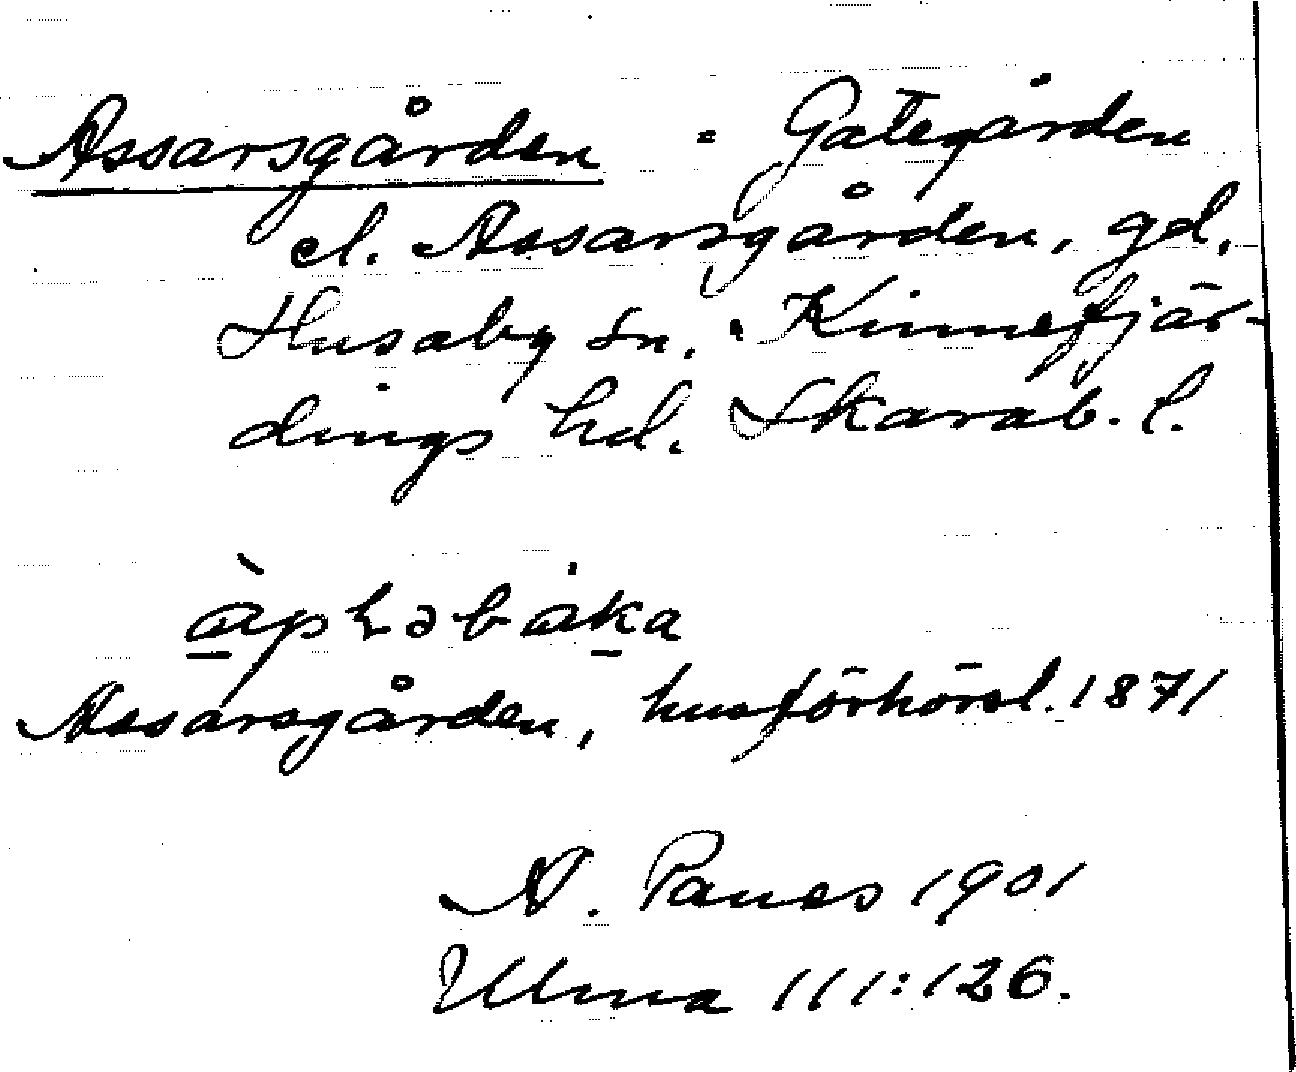 Assarsgården = Gategården
el. Assarsgården, gd,
Husaby sn. Kinnefjär-
dings hd. Skarab. l.
Assarsgården, husförhörsl. 1871
A. Panes 1901
Ulma 111:126.